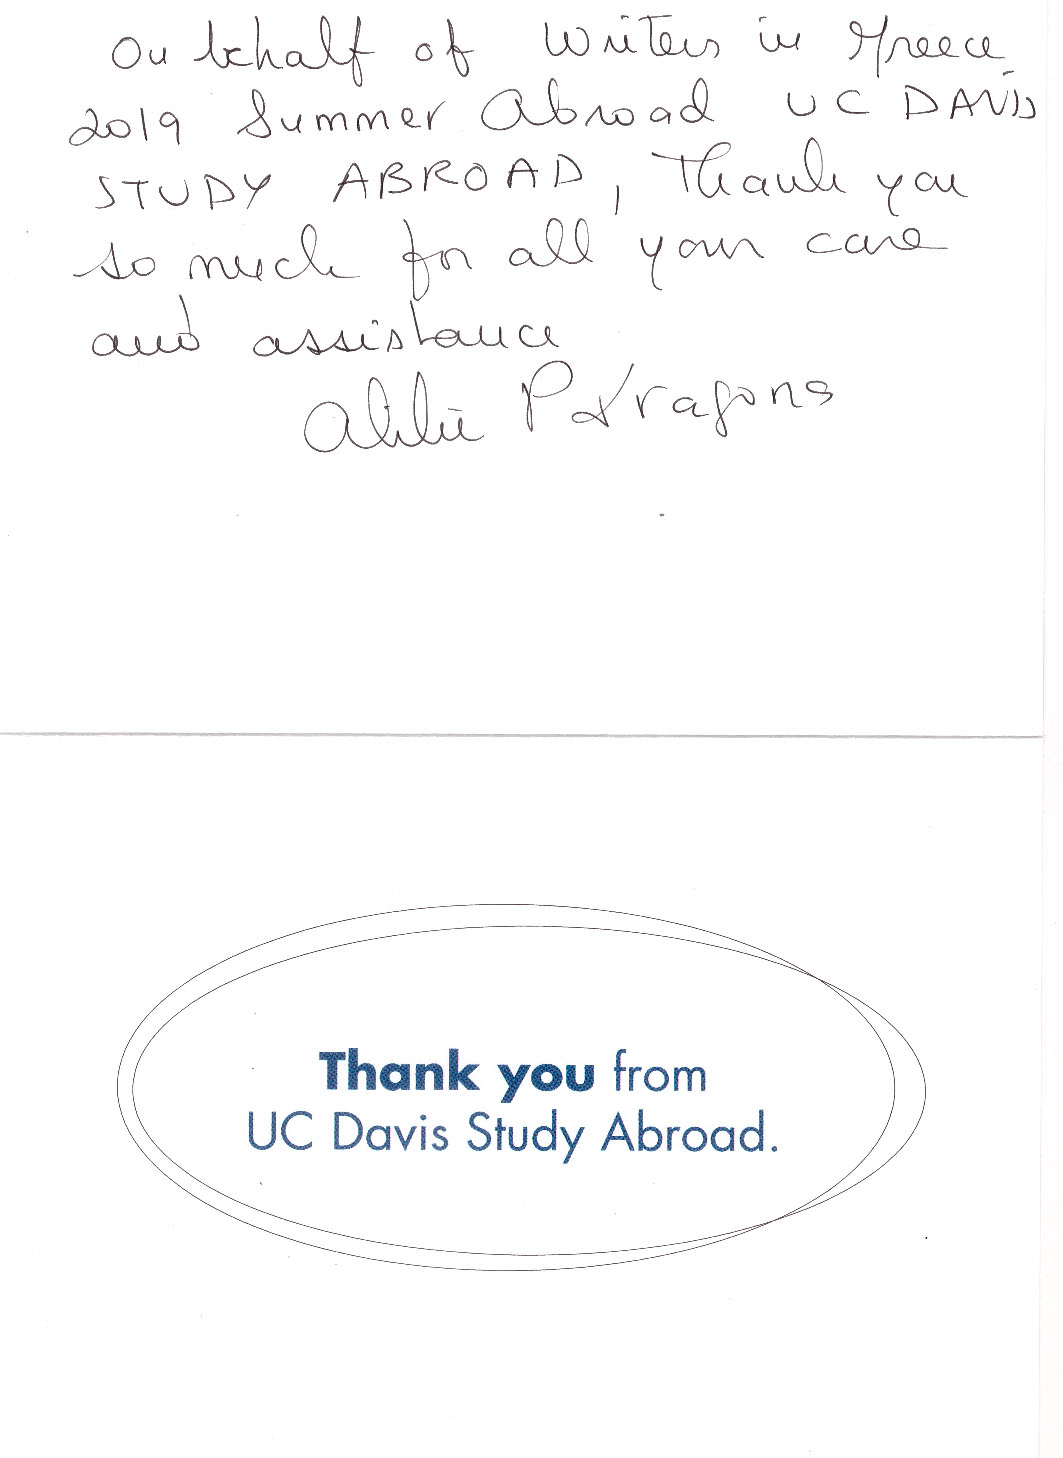 On behalf of Writers in Greece
2019 Summer Abroad UC DAVIS
STUDY ABROAD, Thank you
so much for all your care
and assistance
Thank you from
UC Davis Study Abroad.